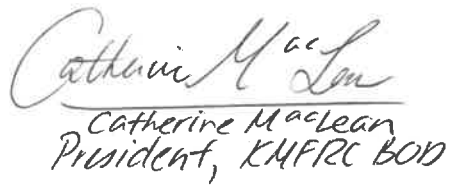 Catherine MacLean
Catherine MacLean
President, KMFRC BOD